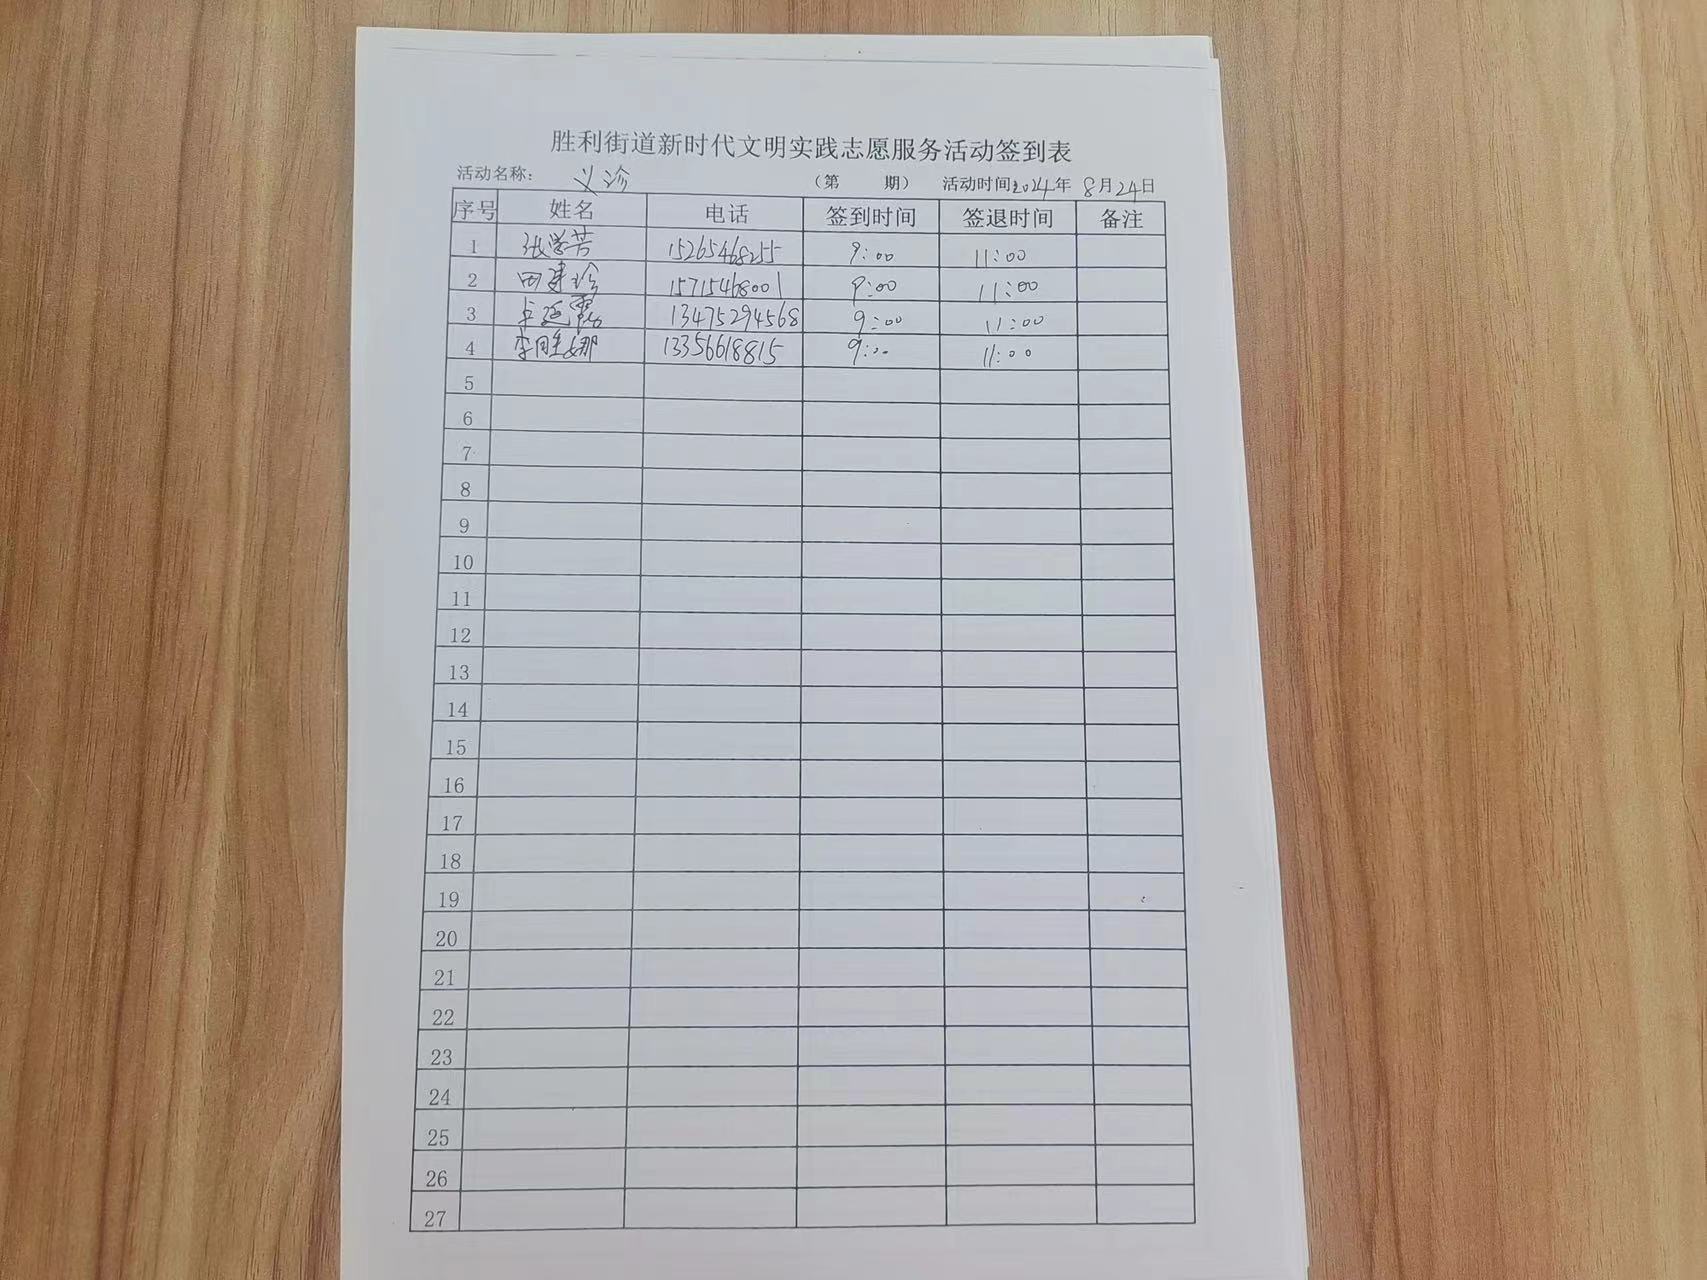 胜利街道新时代文明实践志愿服务活动签到表
活动名称： 义诊 （第 期） 活动时间2024年8月24日
序号 姓名 电话 签到时间 签退时间 备注
1 张学芳 15265468255 9:00 11:00
2 田建珍 15715468001 9:00 11:00
3 13475294568 9:00 11:00
4 李胜娜 13356618815 9:00 11:00
5
6
7
8
9
10
11
12
13
14
15
16
17
18
19
20
21
22
23
24
25
26
27